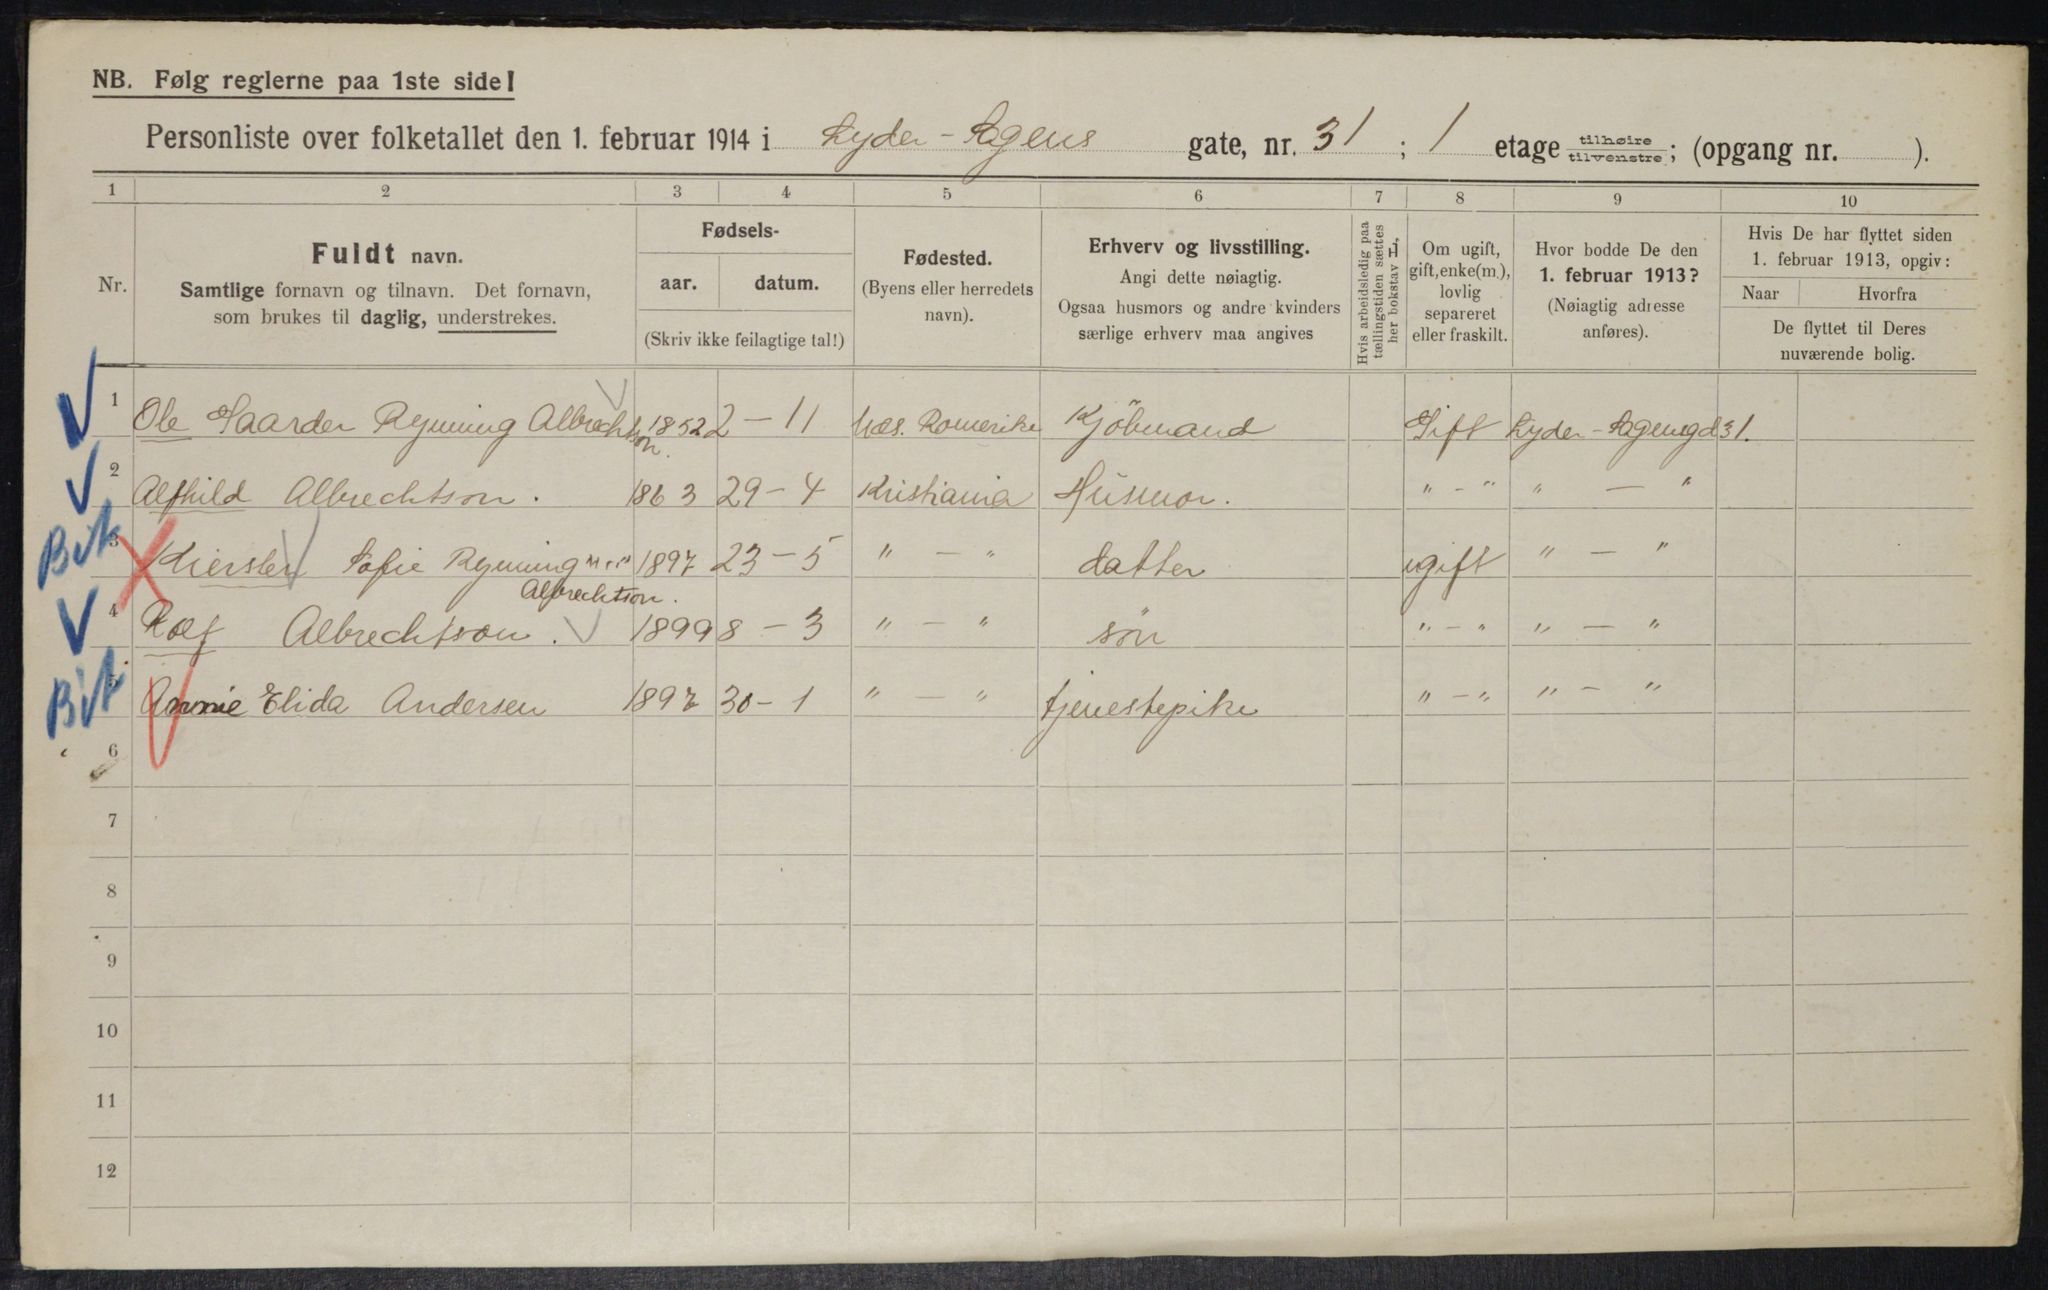 NB. Følg reglerne paa 1ste side!
Personliste over folketallet den 1. februar 1914 i Lyder-Sagens gate, nr. 31 ; 1 etage tilhøire tilvenstre ; (opgang nr. ).
1 2 3 4 5 6 7 8 9 10
Nr.
Fuldt navn.
Samtlige fornavn og tilnavn. Det fornavn,
som brukes til daglig, understrekes.
Fødsels-
aar. datum.
(Skriv ikke feilagtige tal!)
Fødested.
(Byens eller herredets
navn).
Erhverv og livsstilling.
Angi dette nøiagtig.
Ogsaa husmors og andre kvinders
særlige erhverv maa angives
Hvis arbeidsledig paa
tællingstiden sættes
her bokstav L,
Om ugift,
gift, enke(m.),
lovlig
separeret
eller fraskilt.
Hvor bodde De den
1. februar 1913?
(Nøiagtig adresse
anføres).
Hvis De har flyttet siden
1. februar 1913, opgiv:
Naar Hvorfra
De flyttet til Deres
nuværende bolig.
1 Ole Gaarder Ryming Albrechtson 1852 2-11 Næs. Romerike Kjöbmand Gift Lyder-Sagensgd 31.
2 Alfhild Albrechtson. 1863 29-4 Kristiania Husmor. " - " " - "
Bit 3 Kiersten Sofie Ryming 1897 23-5 " - " datter ugift " - "
Albrechtson.
4 Rolf Albrechtson. 1899 8-3 " - " sön " - " " - "
Bit 5 Annie Elida Andersen 1897 30-1 " - " tjenestepike " - " " - "
6
7
8
9
10
11
12